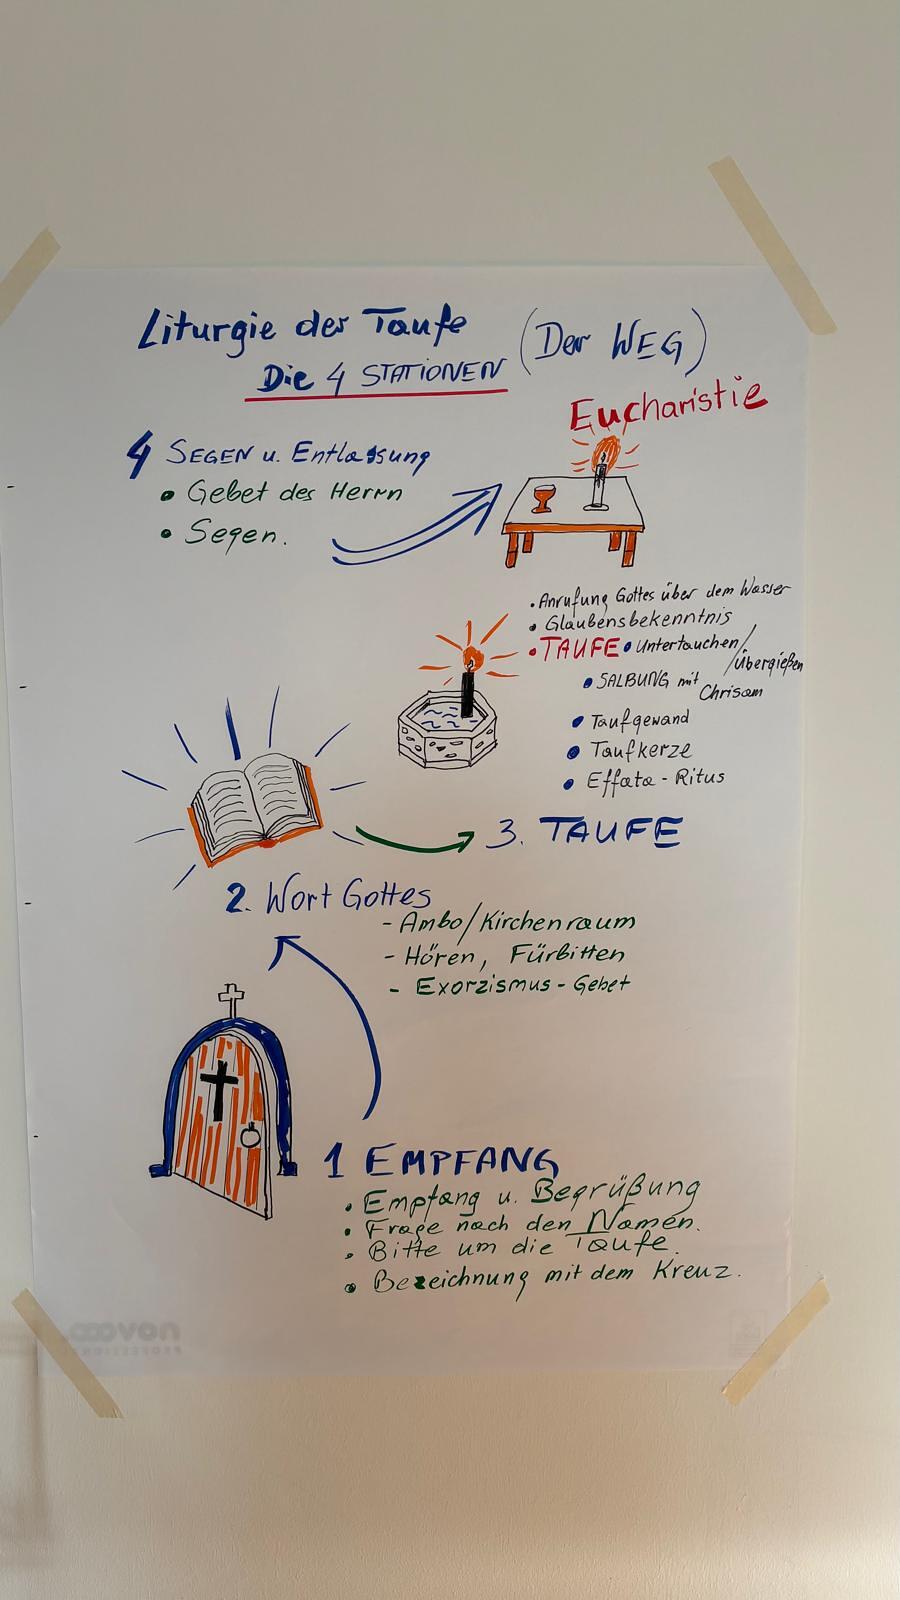 Liturgie der Taufe (Der WEG)
Die 4 STATIONEN
Eucharistie
4 SEGEN u. Entlassung
• Gebet des Herrn
• Segen.
• Anrufung Gottes über dem Wasser
• Glaubensbekenntnis
• TAUFE • Untertauchen/
/Übergießen
• SALBUNG mit
Chrisam
• Taufgewand
• Taufkerze
• Effata - Ritus
3. TAUFE
2. Wort Gottes
- Ambo/Kirchenraum
- Hören, Fürbitten
- Exorzismus - Gebet
1 EMPFANG
• Empfang u. Begrüßung
• Frage nach den Namen.
• Bitte um die Taufe.
• Bezeichnung mit dem Kreuz.
novooom
PROFESSIONAL